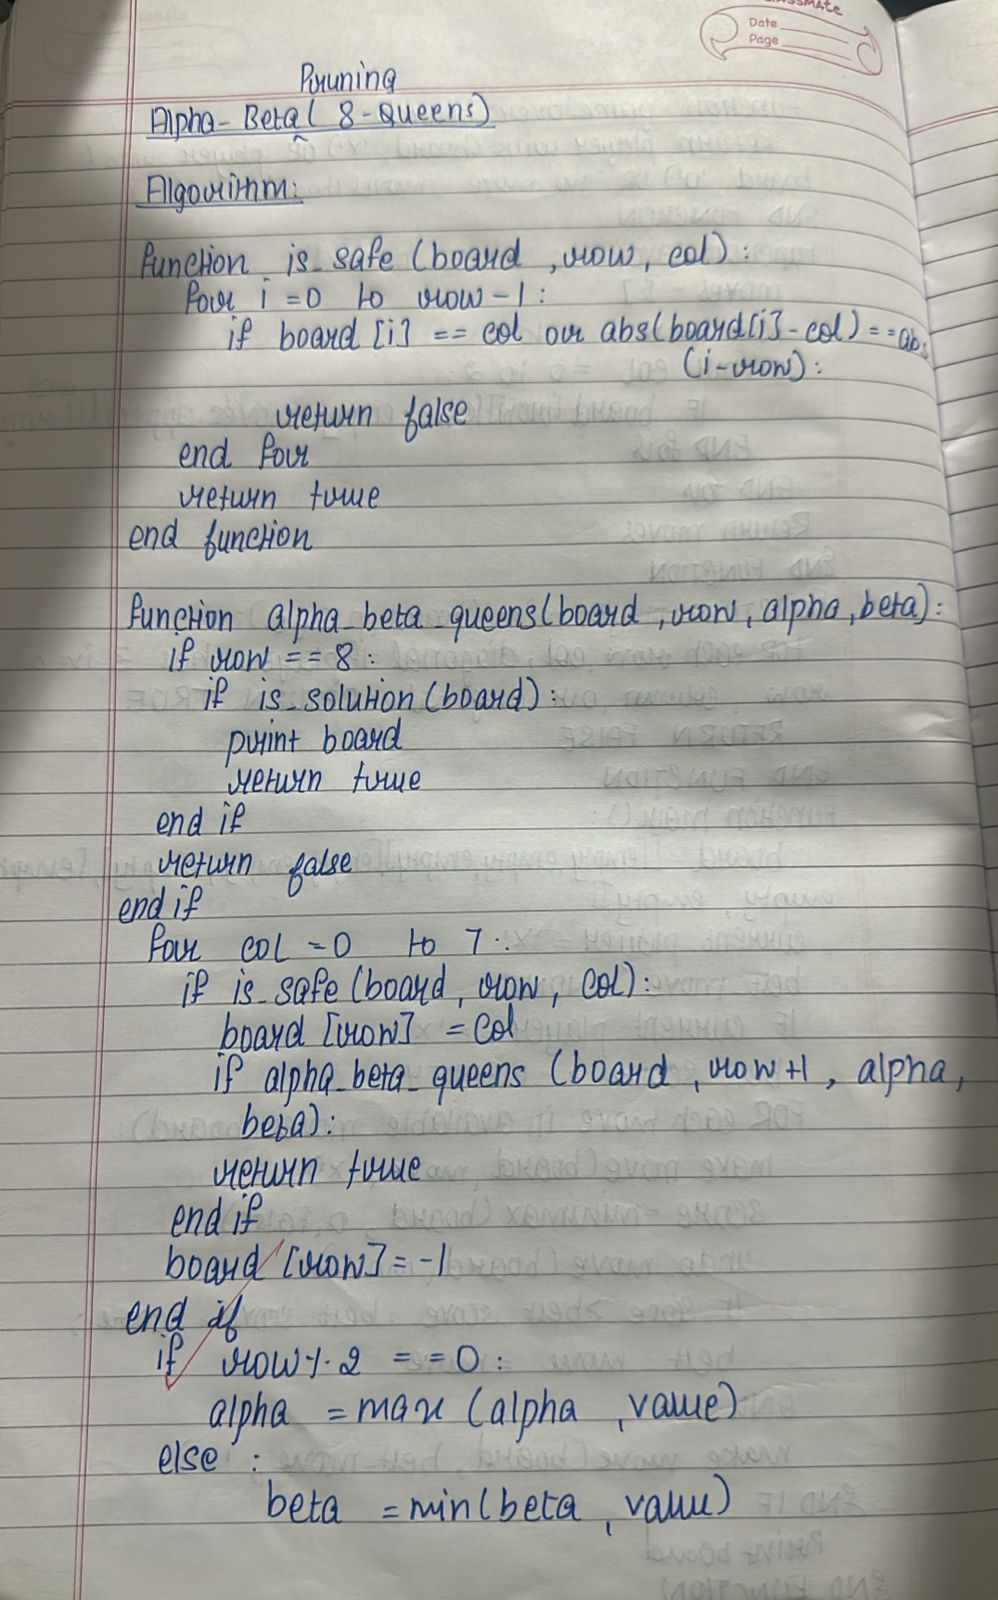 classmate
Date
Page
Pruning
Alpha-Beta( 8-Queens)
Algorithm:
function is_safe (board , row, col) :
for i =0 to row-1 :
if board [i] == col or abs(board[i]-col) == abs
(i-row) :
return false
end for
return true
end function
function alpha_beta_queens(board , row, alpha, beta) :
if row == 8 :
if is_solution (board) :
print board
return true
end if
return false
end if
for col =0 to 7 :
if is_safe (board, row, col) :
board [row] = col
if alpha_beta_queens (board , row+1 , alpha,
beta) :
return true
end if
board [row] = -1
end if
if row % 2 == 0 :
alpha = max (alpha , value)
else :
beta = min(beta , value)